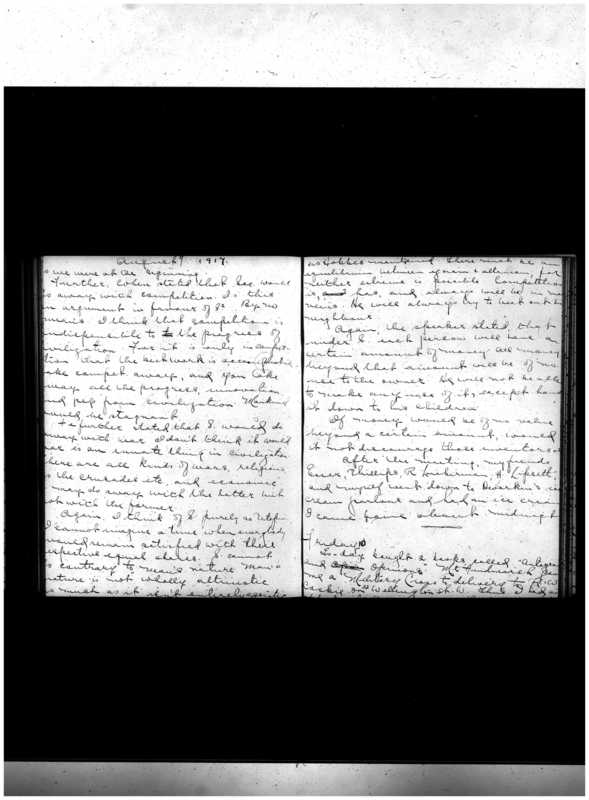 August 9. 1917.
as we were at the beginning.
Further, when stated that Soc. would
do away with competition. Is this
an argument in favour of S? By no
means. I think that competition is
indispensible to the progress of
civilization. For it is only in competi-
tion that the best work is accomplished.
Take compet. away, and you take
away all the progress, innovation
and pep from civilization. Mankind
would be stagnant.
Is further stated that S. would do
away with war. I don't think it would
war is an innate thing in civilization
There are all kinds of wars, religious,
as the crusades etc, and economic
S. may do away with the latter but
not with the former.
Again, I think of S purely as Utopian
I cannot imagine a time when everybody
would remain satisfied with their
respective equal shares. S. cannot
is contrary to man's nature. Man's
nature is not wholly altruistic
as much as it isn't entirely egoistic
as Hobbes mentioned. There must be an
equilibrium between egoism & altruism, for
neither extreme is possible. Competition
is, has, and always will be in our
veins. He will always try to beat out his
neighbour.
Again, the speaker stated, that
under S. each person will have a
certain amount of money. All money
beyond that amount will be of no
use to the owner. He will not be able
to make any use of it, except hand
it down to his children.
If money would be of no value
beyond a certain amount, would
it not discourage those inventors etc
After the meeting, my friends
Phillips, R. H.
and myself went down to ice
cream parlour and had an ice cream
I came home about midnight
Friday 10
To-day bought a book called
and Opinions". Mr.
me a "Military Cross" to delivery to
on Wellington St. W. Thus I had a